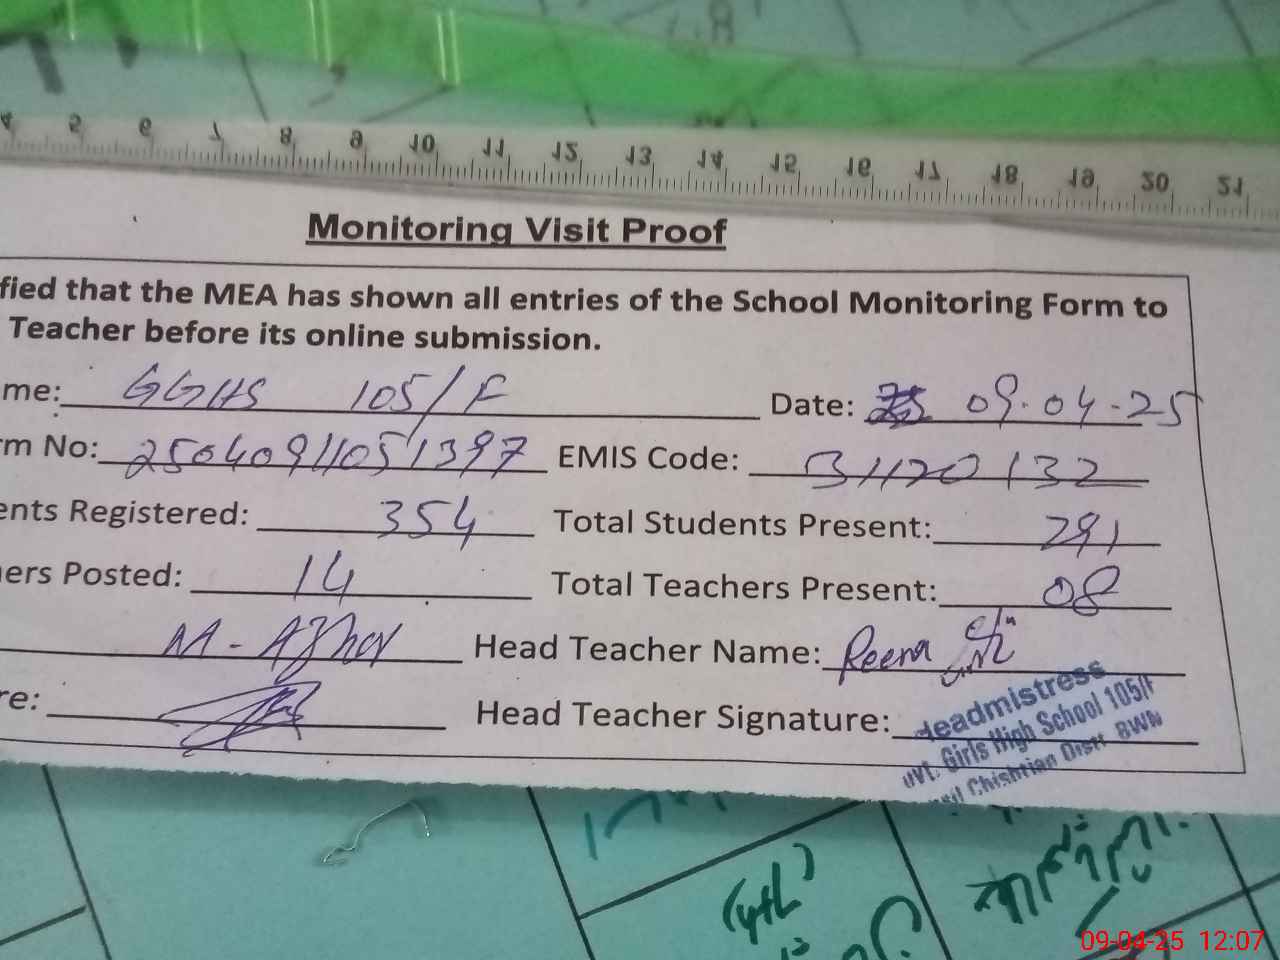 4 5 6 7 8 9 10 11 12 13 14 15 16 17 18 19 20 21
Monitoring Visit Proof
fied that the MEA has shown all entries of the School Monitoring Form to
Teacher before its online submission.
me: GGHS 105/F Date: 09.04-25
rm No: 25040911051397 EMIS Code: 31120132
ents Registered: 354 Total Students Present: 291
ers Posted: 14 Total Teachers Present: 08
M-Azhar Head Teacher Name: Reena
re: Head Teacher Signature:
Headmistress
ovt. Girls High School 105/F
sil Chishtian Distt BWN
09-04-25 12:07